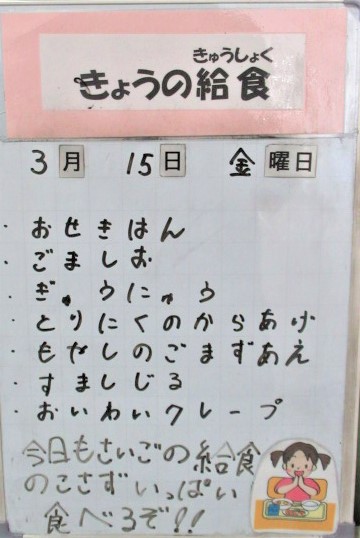 きゅうしょく
きょうの給食
3月 15日 金曜日
・おせきはん
・ごましお
・ぎゅうにゅう
・とりにくのからあげ
・もやしのごまずあえ
・すましじる
・おいわいクレープ
今日もさいごの給食
のこさずいっぱい
食べるぞ!!